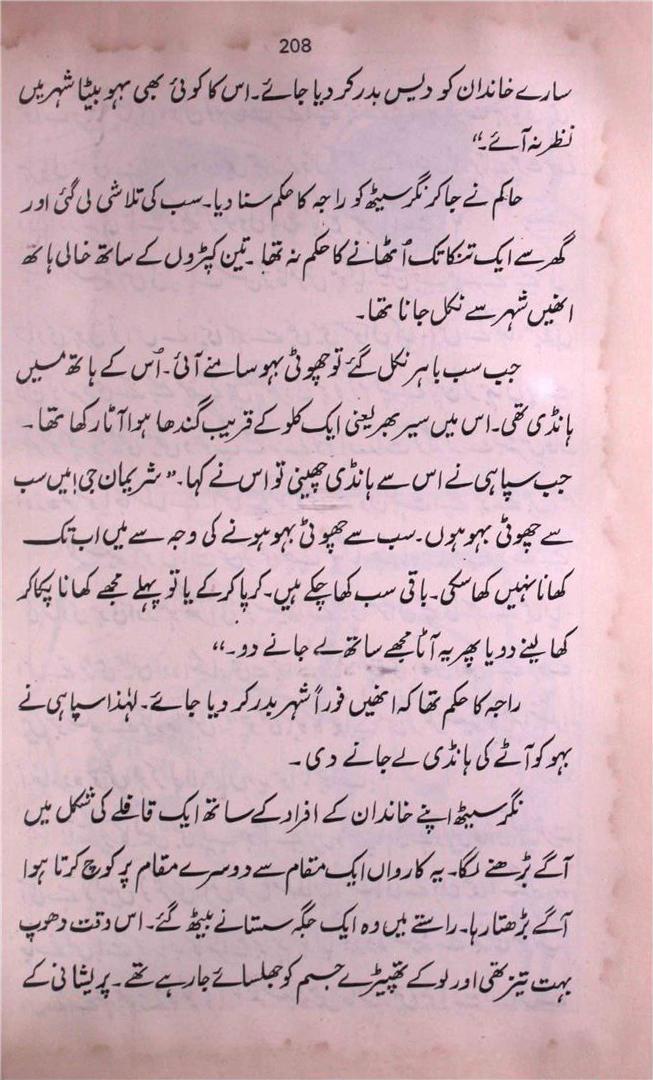 208
سارے خاندان کو دیس بدر کر دیا جائے۔ اس کا کوئی بھی بہو بیٹا شہر میں
نظر نہ آئے۔“
حاکم نے جا کر نگر سیٹھ کو راجہ کا حکم سنا دیا۔ سب کی تلاشی لی گئی اور
گھر سے ایک تنکا تک اُٹھانے کا حکم نہ تھا ۔ تین کپڑوں کے ساتھ خالی ہاتھ
انھیں شہر سے نکل جانا تھا۔
جب سب باہر نکل گئے تو چھوٹی بہو سامنے آئی۔ اُس کے ہاتھ میں
ہانڈی تھی۔ اس میں سیر بھر یعنی ایک کلو کے قریب گندھا ہوا آٹا رکھا تھا ۔
جب سپاہی نے اس سے ہانڈی چھینی تو اس نے کہا۔ ”شریمان جی! میں سب
سے چھوٹی بہو ہوں۔ سب سے چھوٹی بہو ہونے کی وجہ سے میں اب تک
کھانا نہیں کھا سکی۔ باقی سب کھا چکے ہیں۔ کرپا کر کے یا تو پہلے مجھے کھانا پکا کر
کھا لینے دو یا پھر یہ آٹا مجھے ساتھ لے جانے دو۔“
راجہ کا حکم تھا کہ انھیں فوراً شہر بدر کر دیا جائے۔ لہٰذا سپاہی نے
بہو کو آٹے کی ہانڈی لے جانے دی ۔
نگر سیٹھ اپنے خاندان کے افراد کے ساتھ ایک قافلے کی شکل میں
آگے بڑھنے لگا۔ یہ کارواں ایک مقام سے دوسرے مقام پر کوچ کرتا ہوا
آگے بڑھتا رہا۔ راستے میں وہ ایک جگہ سستانے بیٹھ گئے۔ اس وقت دھوپ
بہت تیز تھی اور لو کے تھپیڑے جسم کو جھلسائے جا رہے تھے ۔ پریشانی کے